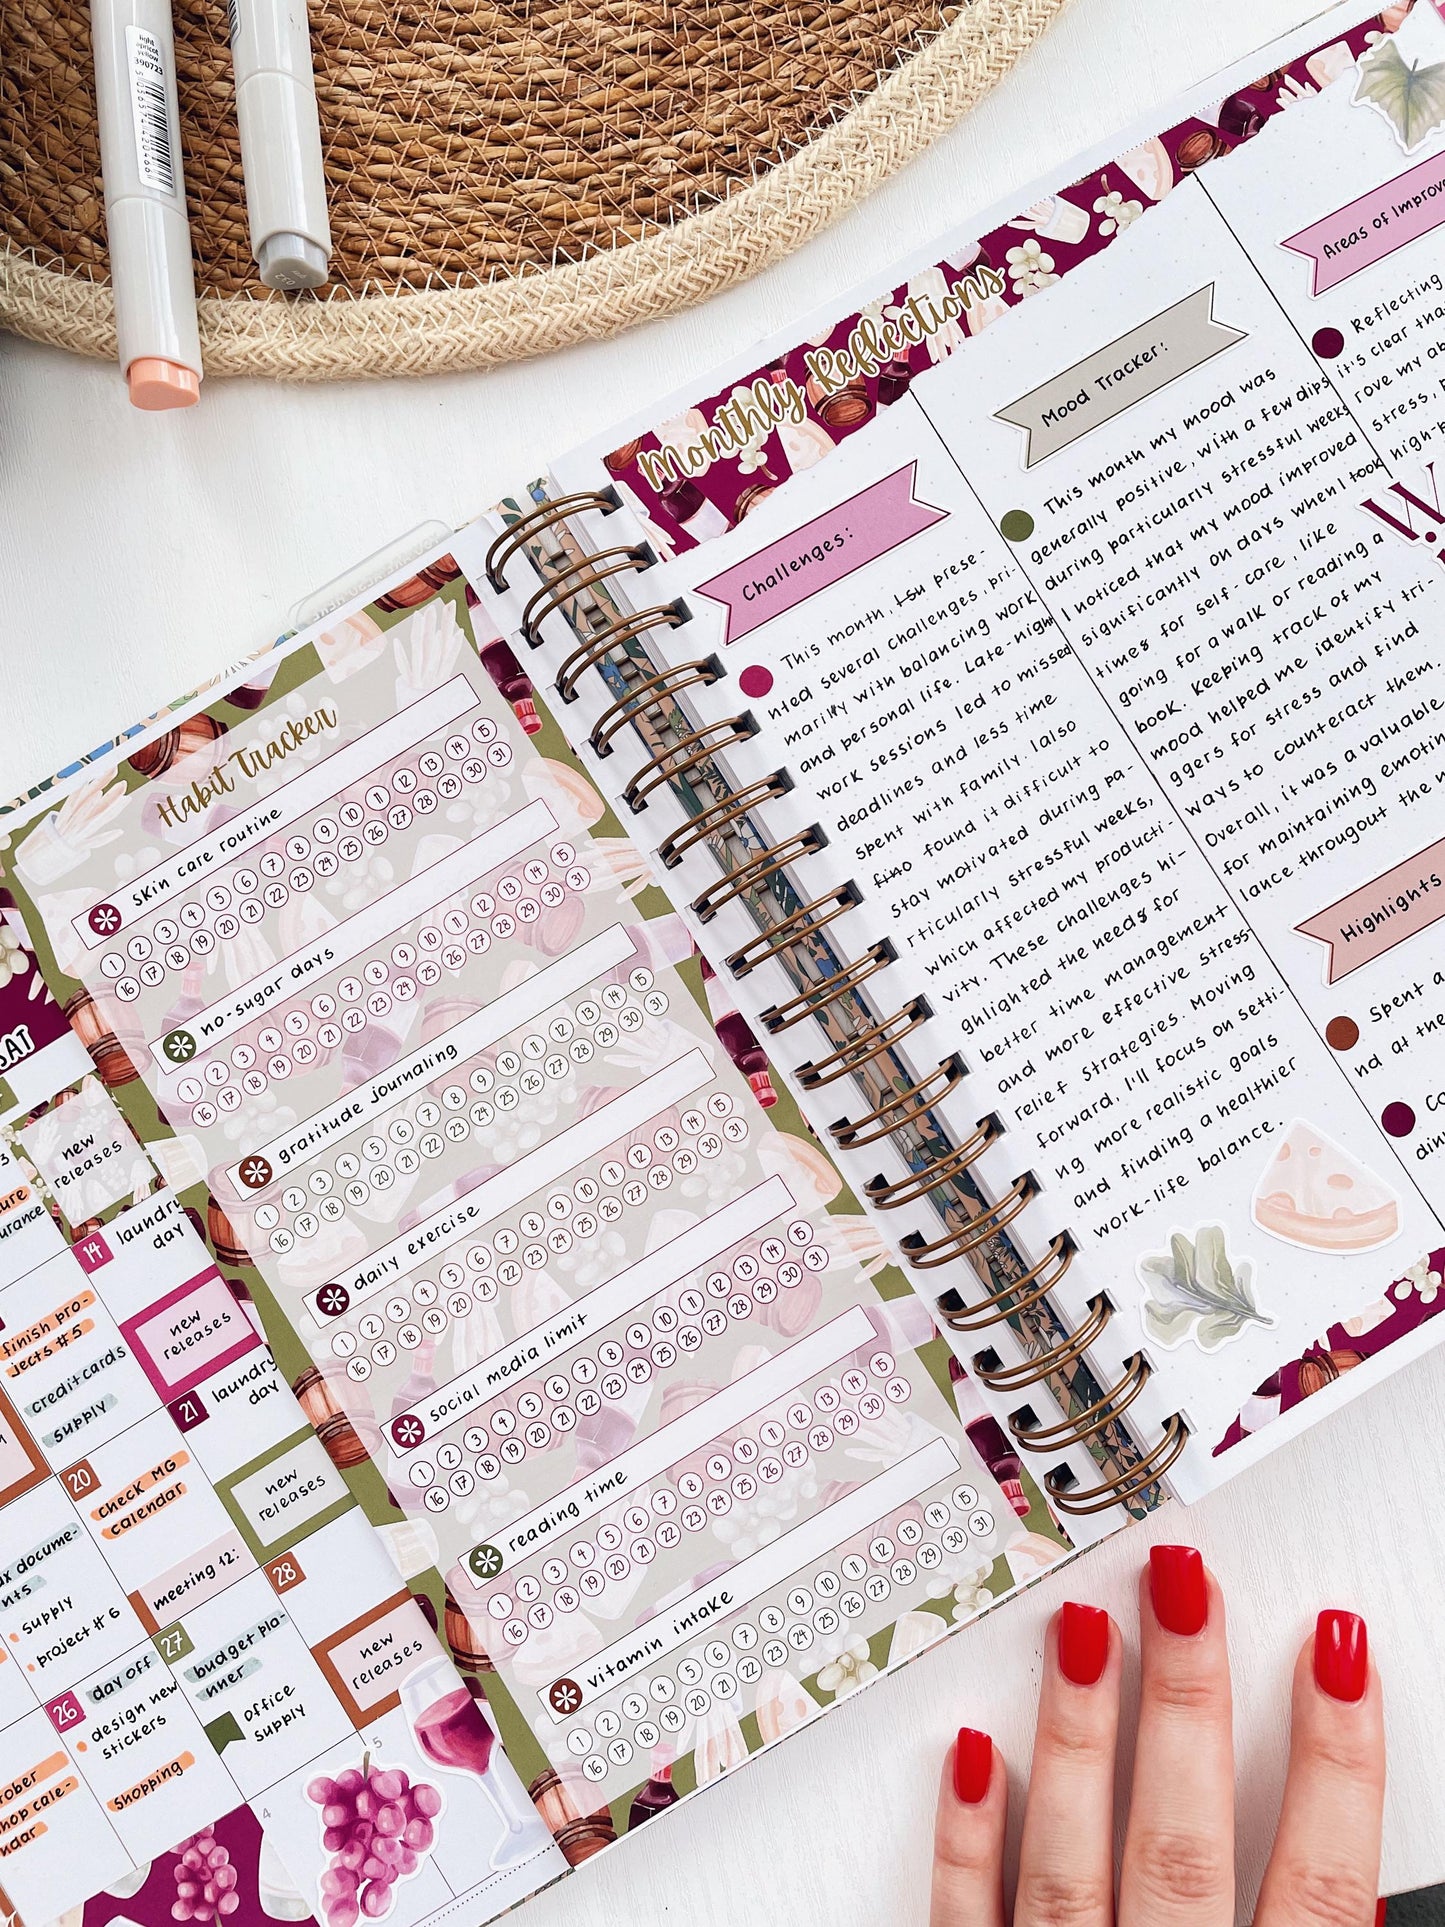 light
apricot
yellow
390723
Habit Tracker
skin care routine
1 2 3 4 5 6 7 8 9 10 11 12 13 14 15
16 17 18 19 20 21 22 23 24 25 26 27 28 29 30 31
no-sugar days
1 2 3 4 5 6 7 8 9 10 11 12 13 14 15
16 17 18 19 20 21 22 23 24 25 26 27 28 29 30 31
gratitude journaling
1 2 3 4 5 6 7 8 9 10 11 12 13 14 15
16 17 18 19 20 21 22 23 24 25 26 27 28 29 30 31
daily exercise
1 2 3 4 5 6 7 8 9 10 11 12 13 14 15
16 17 18 19 20 21 22 23 24 25 26 27 28 29 30 31
social media limit
1 2 3 4 5 6 7 8 9 10 11 12 13 14 15
16 17 18 19 20 21 22 23 24 25 26 27 28 29 30 31
reading time
1 2 3 4 5 6 7 8 9 10 11 12 13 14 15
16 17 18 19 20 21 22 23 24 25 26 27 28 29 30 31
vitamin intake
1 2 3 4 5 6 7 8 9 10 11 12 13 14 15
16 17 18 19 20 21 22 23 24 25 26 27 28 29 30 31
SAT
new
releases
urance
14 laundry
day
new
releases
finish pro-
jects #5
credit cards
supply
21 laundry
day
new
releases
20
check MG
calendar
meeting 12:
28
new
releases
x docume-
nts
supply
project #6
27
budget pla-
nner
office
supply
26 day off
design new
stickers
shopping
ober
hop cale-
ndar
4
5
Monthly Reflections
Challenges:
This month, prese-
nted several challenges, pri-
marily with balancing work
and personal life. Late-night
work sessions led to missed
deadlines and less time
spent with family. I also
found it difficult to
stay motivated during pa-
rticularly stressful weeks,
which affected my producti-
vity. These challenges hi-
ghlighted the needs for
better time management
and more effective stress-
relief strategies. Moving
forward, I'll focus on setti-
ng more realistic goals
and finding a healthier
work-life balance.
Mood Tracker:
This month my mood was
generally positive, with a few dips
during particularly stressful weeks
I noticed that my mood improved
significantly on days when I took
times for self-care, like
going for a walk or reading a
book. Keeping track of my
mood helped me identify tri-
ggers for stress and find
ways to counteract them.
Overall, it was a valuable
for maintaining emotio
lance througout the m
Areas of Improve
Reflecting
it's clear tha
rove my ab
stress, p
high-p
W
Highlights
Spent a
nd at the
Co
din